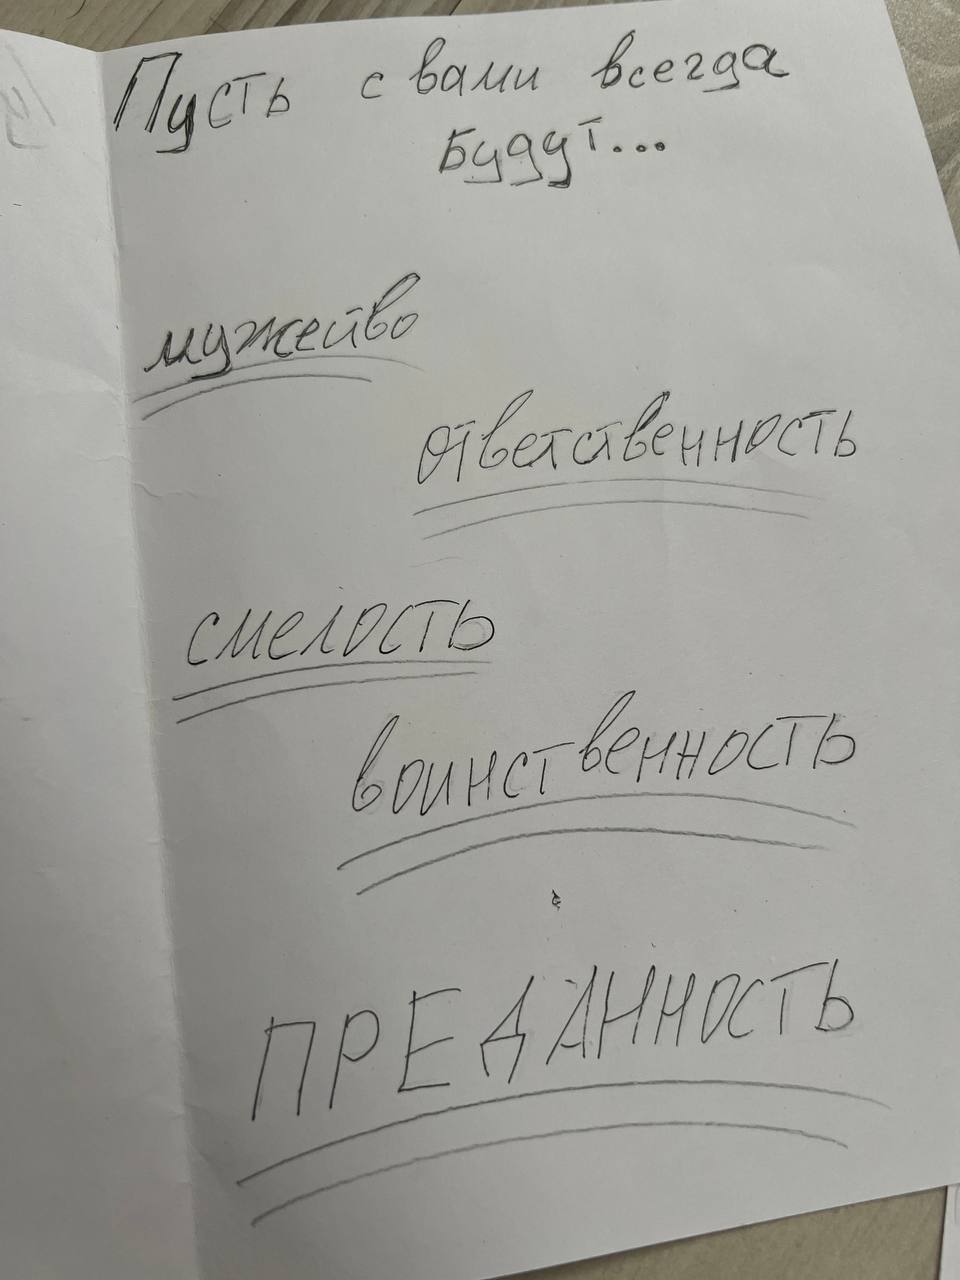 Пусть с вами всегда
будут...
мужейво
ответственность
смелость
воинственность
ПРЕДАННОСТЬ